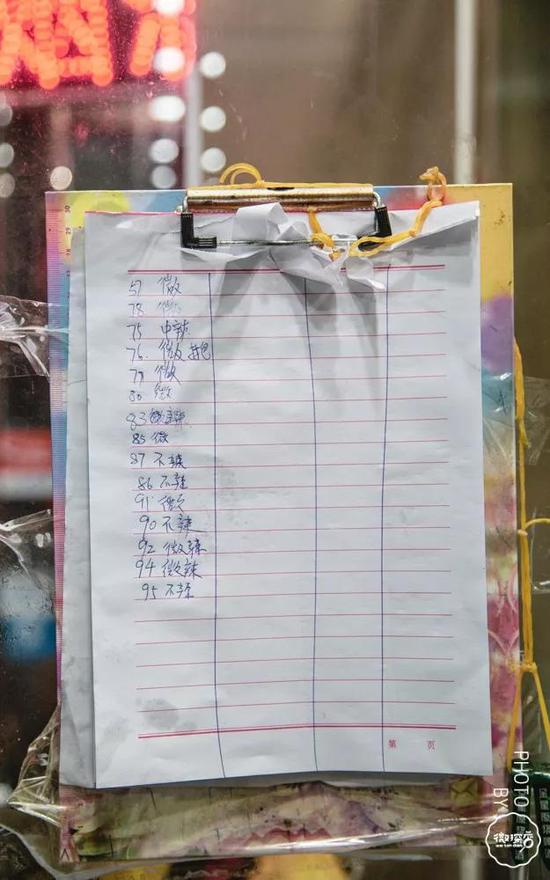 57 微
78 微
75 中辣
76. 微 打包
79 微
80 微
83 微辣
85 微
87 不辣
86 不辣
91 微
90 不辣
92 微辣
94 微辣
95 不辣
第 页
PHOTO BY
微探